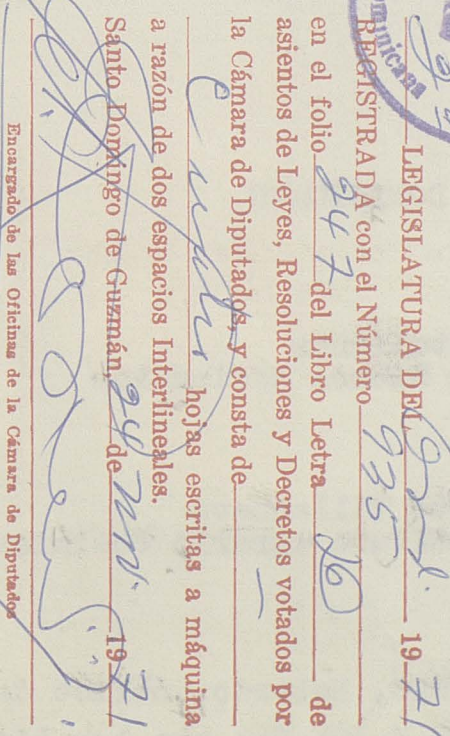 LEGISLATURA DEL Ord. 1971
REGISTRADA con el Número 935
en el folio 247 del Libro Letra de
asientos de Leyes, Resoluciones y Decretos votados por
la Cámara de Diputados, y consta de
Cuatro hojas escritas a máquina
a razón de dos espacios Interlineales.
Santo Domingo de Guzmán 24 de 1971
Encargado de las Oficinas de la Cámara de Diputados